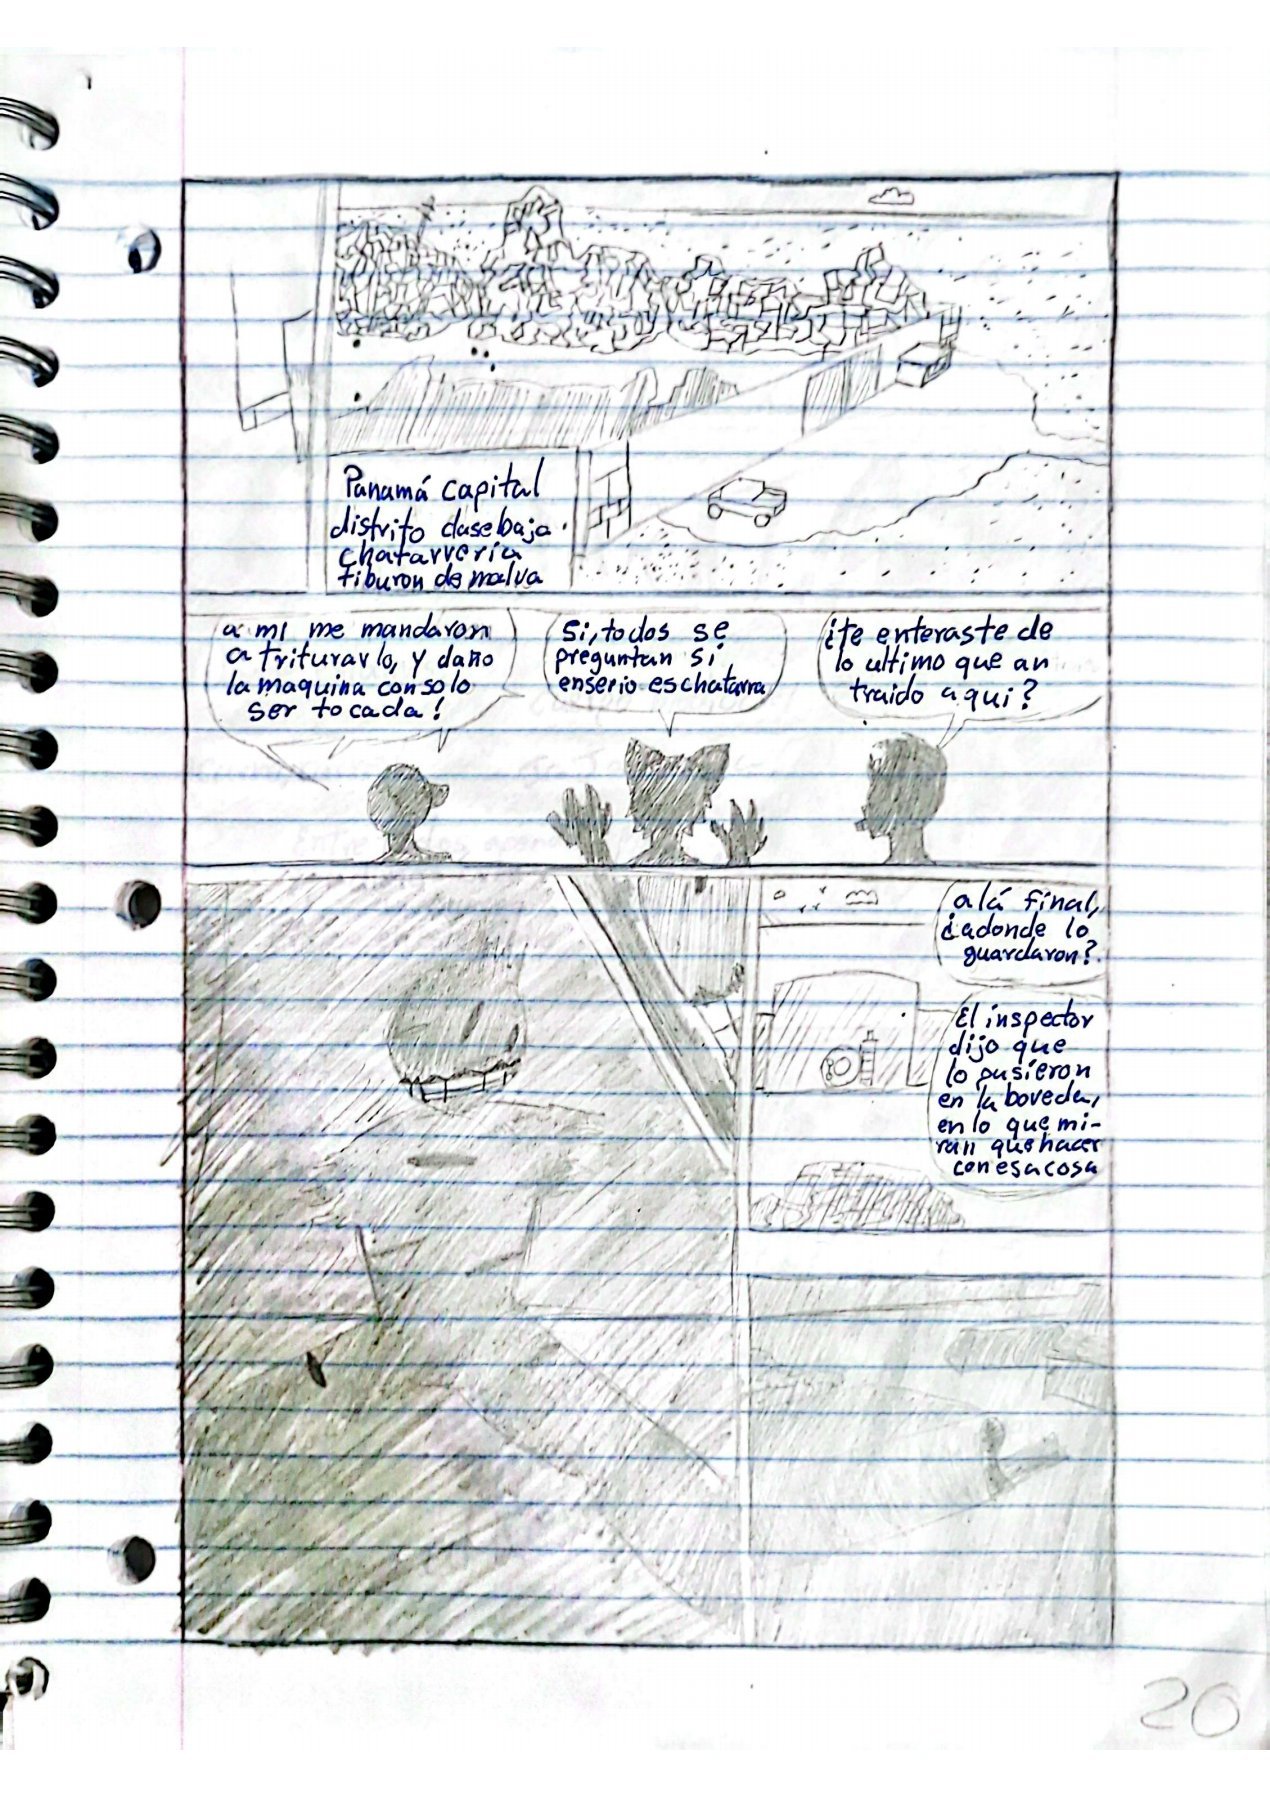 Panamá capital
distrito clase baja.
chatarreria
tiburon de malva
¿te enteraste de
lo ultimo que an
traido aqui?
Si, todos se
preguntan si
enserio es chatarra
a mi me mandaron
a triturarlo, y daño
la maquina con solo
ser tocada!
a lá final,
¿adonde lo
guardaron?
El inspector
dijo que
lo pusieron
en la boveda,
en lo que mi-
ran que hacer
con esa cosa
20